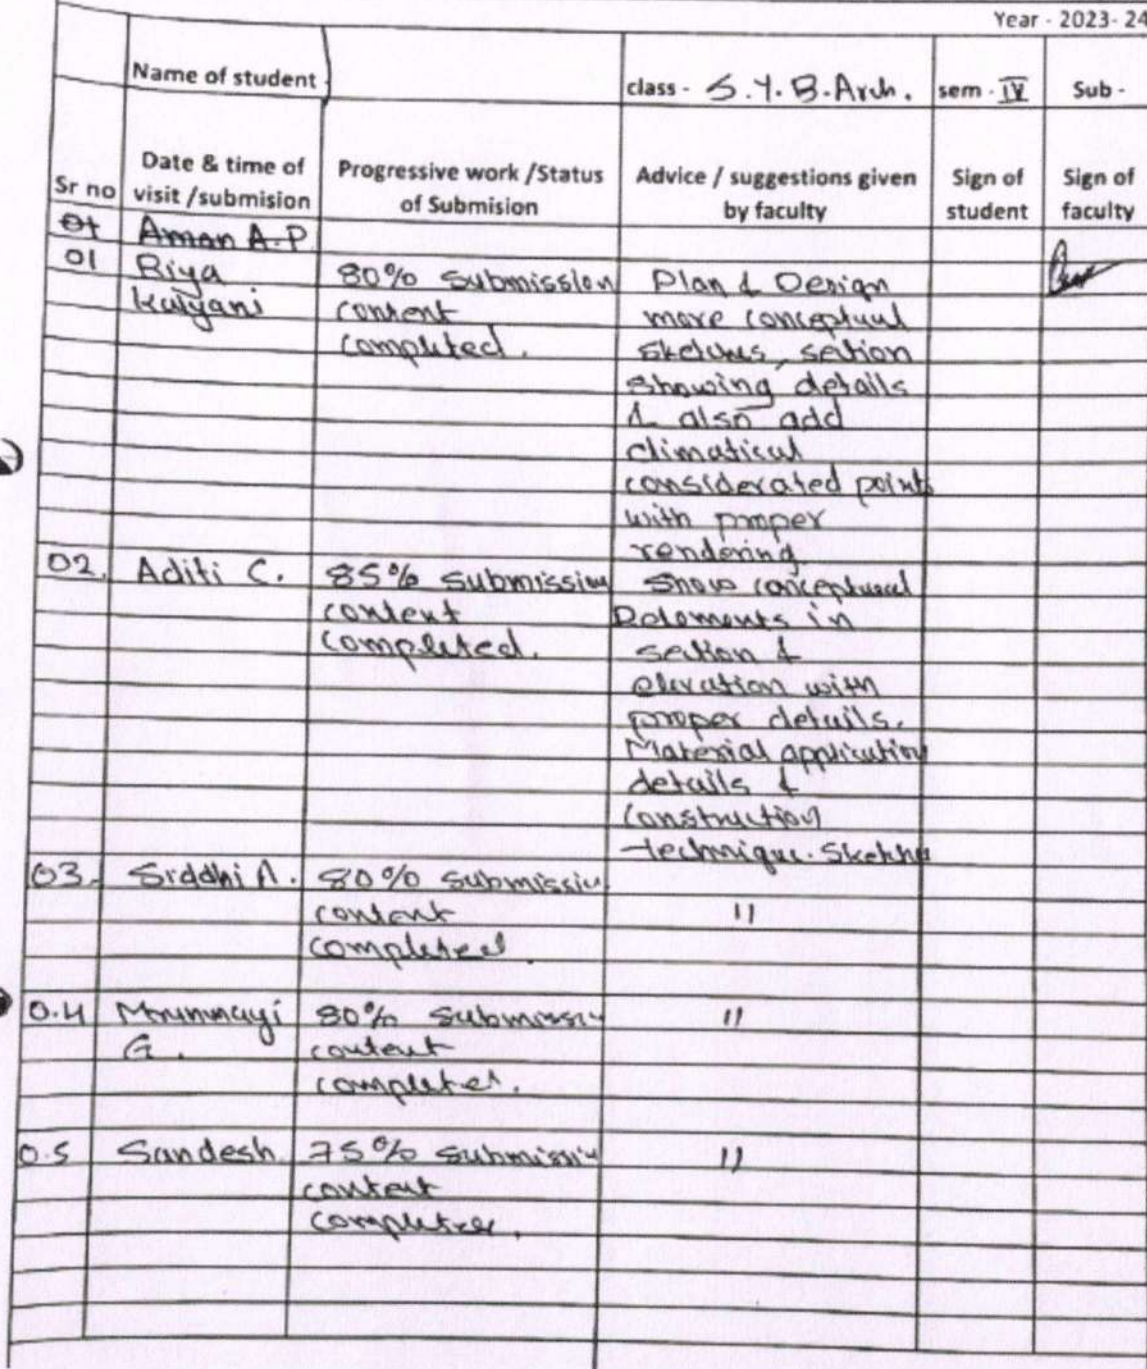 Year - 2023-24
Name of student class - S.Y.B.Arch. sem - IV Sub -
Sr no Date & time of visit /submision Progressive work /Status of Submision Advice / suggestions given by faculty Sign of student Sign of faculty
01 Aman A.P
01 Riya 80% submission Plan & Design
Kalyani content more conceptual
completed. sketches, section
showing details
& also add
climatical
considerated points
with proper
rendering.
02. Aditi C. 85% submission show conceptural
content in
completed. section &
elevation with
proper details.
Material application
details &
construction
technique. Sketche
03. Siddhi A. 80% submissin
content "
completed.
0.4 Mrunmayi 80% submission "
G. content
completed.
0.5 Sandesh 75% submission "
content
completed.